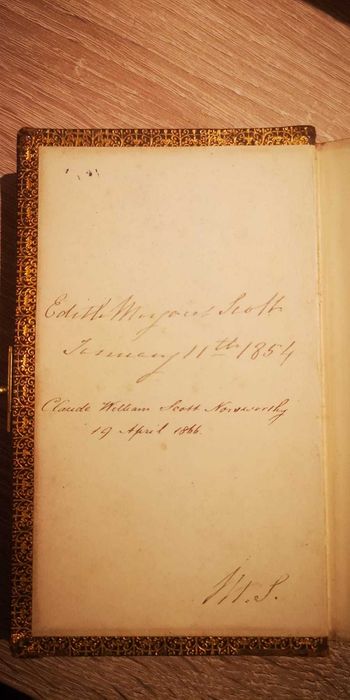 Edith Margaret Scott
January 11th 1854
Claude William Scott Norsworthy
19 April 1866.
M.S.